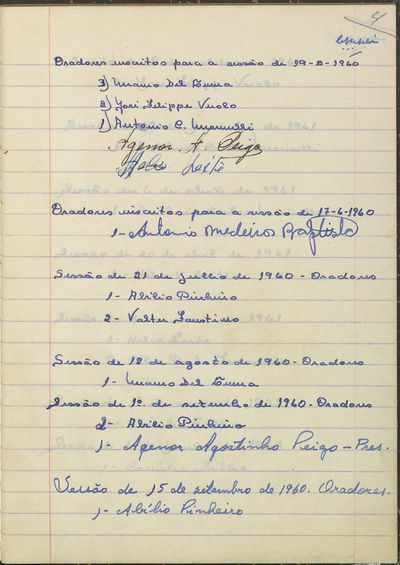 4
Oradores inscritos para a sessão de 19-5-1960
3) Urano Del Cunna
2) José Filippe Vuolo
1) Antonio C.
Agenor A. Peigo
Helio Leite
Oradores inscritos para a sessão de 17-6-1960
1- Antonio Medeiros Baptista
Sessão de 21 de julho de 1960 - Oradores
1- Abilio Pinheiro
2- Valter Faustino
Sessão de 18 de agosto de 1960 - Oradores
1- Urano Del Cunna
Sessão de 1º de setembro de 1960 - Oradores
2- Abilio Pinheiro
1- Agenor Agostinho Peigo - Pres.
Sessão de 15 de setembro de 1960. Oradores.
1- Abílio Pinheiro